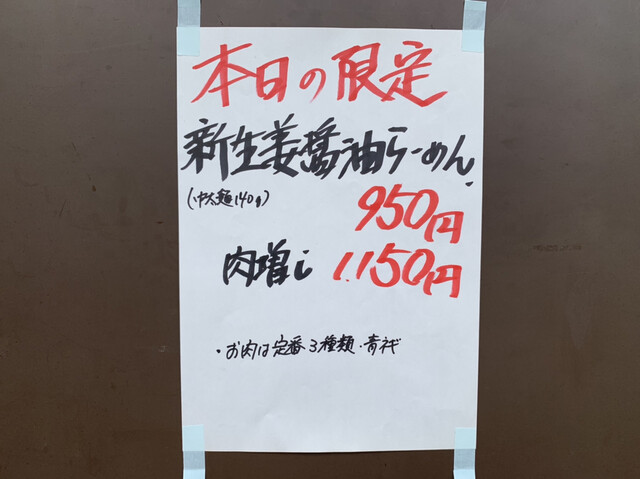 本日の限定
新生姜醤油らーめん
(中太麺140g)
950円
肉増し 1.150円
・お肉は定番3種類・青ネギ